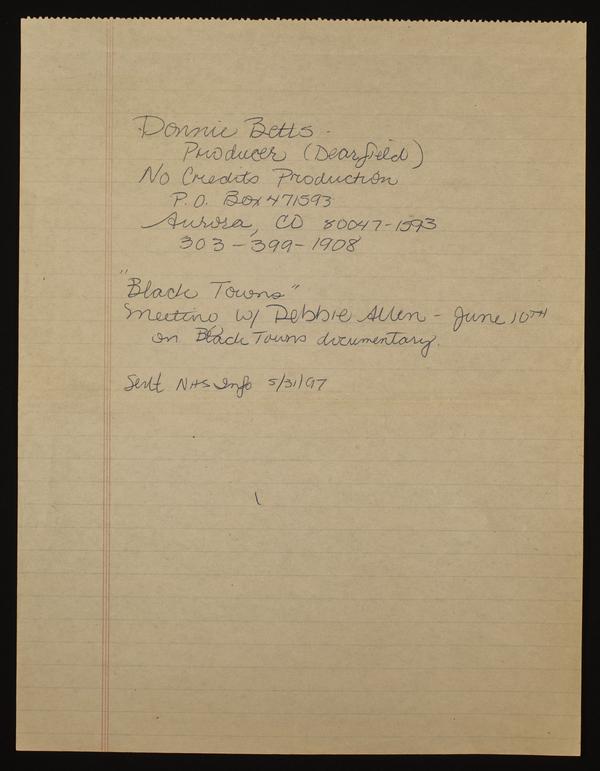 Donnie Betts -
Producer (Dearfield)
No Credits Production
P.O. Box 471593
Aurora, CO 80047-1593
303-399-1908
"Black Towns"
Meeting w/ Debbie Allen - June 10TH
on Black Towns documentary.
Sent NHS Info 5/31/97